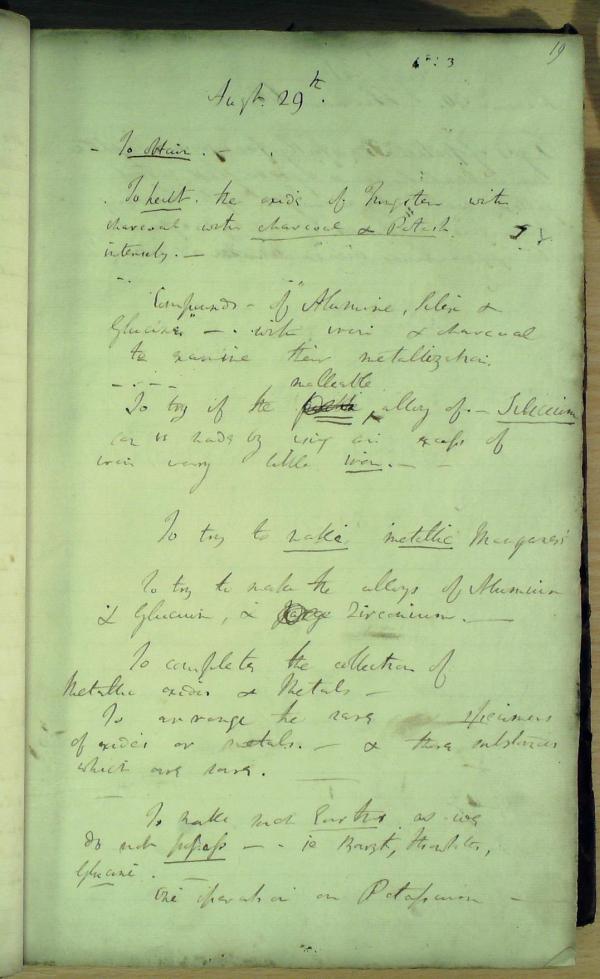 19
Augt. 29th.
- To obtain.
To heat the oxide of Tungsten with
charcoal with charcoal & Potash
intensely. -
Compounds - of Alumine, Silex &
Glucine - with iron & charcoal
to examine their metallization.
malleable
To try if the alloy of - Silicium
can be made by using an excess of
iron very little iron. -
To try to make metallic Manganese
To try to make the alloys of Aluminum
& Glucium, & Zirconium. -
To complete the collection of
Metallic oxides & Metals -
To arrange the rare specimens
of oxides or metals. - & those substances
which are rare.
To make such Earths as we
do not possess - ie Baryt, Strontites,
Glucine.
One operation on Potassium -